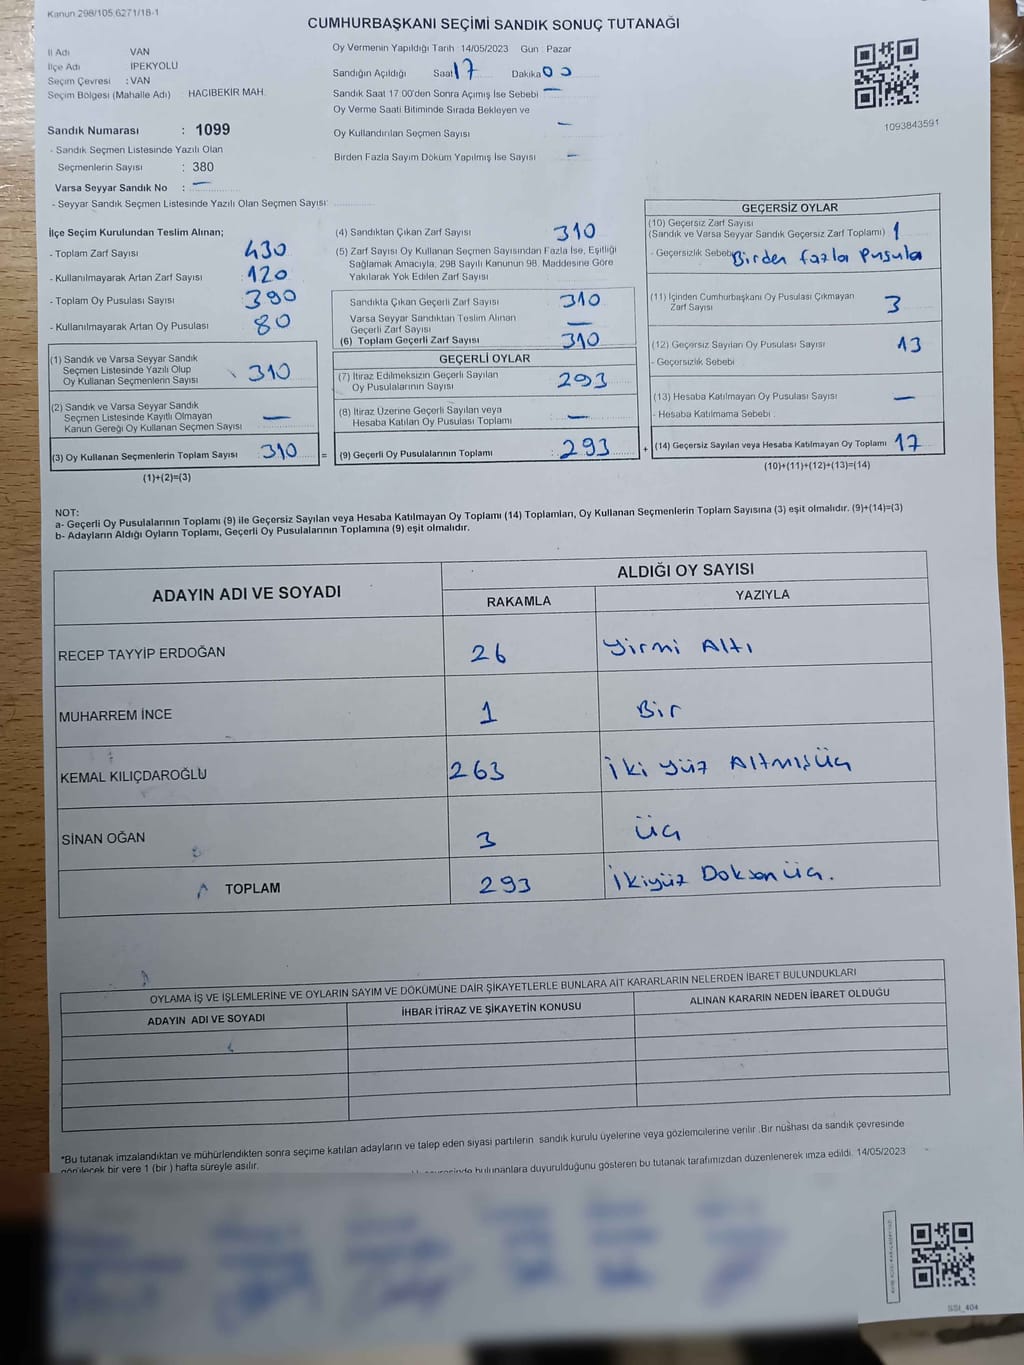 Kanun 298/105,6271/18-1
CUMHURBAŞKANI SEÇİMİ SANDIK SONUÇ TUTANAĞI
İl Adı VAN
İlçe Adı İPEKYOLU
Seçim Çevresi : VAN
Seçim Bölgesi (Mahalle Adı) HACIBEKİR MAH.
Sandık Numarası : 1099
- Sandık Seçmen Listesinde Yazılı Olan
Seçmenlerin Sayısı : 380
Varsa Seyyar Sandık No : —
- Seyyar Sandık Seçmen Listesinde Yazılı Olan Seçmen Sayısı:
Oy Vermenin Yapıldığı Tarih : 14/05/2023 Gün : Pazar
Sandığın Açıldığı Saat 17 Dakika 00
Sandık Saat 17.00'den Sonra Açımış İse Sebebi —
Oy Verme Saati Bitiminde Sırada Bekleyen ve
Oy Kullandırılan Seçmen Sayısı —
Birden Fazla Sayım Döküm Yapılmış İse Sayısı —
1093843591
İlçe Seçim Kurulundan Teslim Alınan;
- Toplam Zarf Sayısı : 430
- Kullanılmayarak Artan Zarf Sayısı : 120
- Toplam Oy Pusulası Sayısı : 390
- Kullanılmayarak Artan Oy Pusulası : 80
(1) Sandık ve Varsa Seyyar Sandık
Seçmen Listesinde Yazılı Olup
Oy Kullanan Seçmenlerin Sayısı 310
(2) Sandık ve Varsa Seyyar Sandık
Seçmen Listesinde Kayıtlı Olmayan
Kanun Gereği Oy Kullanan Seçmen Sayısı —
(3) Oy Kullanan Seçmenlerin Toplam Sayısı 310 =
(1)+(2)=(3)
(4) Sandıktan Çıkan Zarf Sayısı 310
(5) Zarf Sayısı Oy Kullanan Seçmen Sayısından Fazla İse, Eşitliği
Sağlamak Amacıyla, 298 Sayılı Kanunun 98. Maddesine Göre
Yakılarak Yok Edilen Zarf Sayısı
Sandıkta Çıkan Geçerli Zarf Sayısı 310
Varsa Seyyar Sandıktan Teslim Alınan
Geçerli Zarf Sayısı —
(6) Toplam Geçerli Zarf Sayısı 310
GEÇERLİ OYLAR
(7) İtiraz Edilmeksizin Geçerli Sayılan
Oy Pusulalarının Sayısı 293
(8) İtiraz Üzerine Geçerli Sayılan veya
Hesaba Katılan Oy Pusulası Toplamı —
(9) Geçerli Oy Pusulalarının Toplamı : 293 +
GEÇERSİZ OYLAR
(10) Geçersiz Zarf Sayısı
(Sandık ve Varsa Seyyar Sandık Geçersiz Zarf Toplamı) 1
- Geçersizlik Sebebi Birden fazla Pusula
(11) İçinden Cumhurbaşkanı Oy Pusulası Çıkmayan
Zarf Sayısı 3
(12) Geçersiz Sayılan Oy Pusulası Sayısı 13
- Geçersizlik Sebebi
(13) Hesaba Katılmayan Oy Pusulası Sayısı —
- Hesaba Katılmama Sebebi :
(14) Geçersiz Sayılan veya Hesaba Katılmayan Oy Toplamı 17
(10)+(11)+(12)+(13)=(14)
NOT:
a- Geçerli Oy Pusulalarının Toplamı (9) ile Geçersiz Sayılan veya Hesaba Katılmayan Oy Toplamı (14) Toplamları, Oy Kullanan Seçmenlerin Toplam Sayısına (3) eşit olmalıdır. (9)+(14)=(3)
b- Adayların Aldığı Oyların Toplamı, Geçerli Oy Pusulalarının Toplamına (9) eşit olmalıdır.
ADAYIN ADI VE SOYADI ALDIĞI OY SAYISI
RAKAMLA YAZIYLA
RECEP TAYYİP ERDOĞAN 26 Yirmi Altı
MUHARREM İNCE 1 Bir
KEMAL KILIÇDAROĞLU 263 İki yüz Altmışüç
SİNAN OĞAN 3 üç
TOPLAM 293 İkiyüz Doksan üç.
OYLAMA İŞ VE İŞLEMLERİNE VE OYLARIN SAYIM VE DÖKÜMÜNE DAİR ŞİKAYETLERLE BUNLARA AİT KARARLARIN NELERDEN İBARET BULUNDUKLARI
ADAYIN ADI VE SOYADI İHBAR İTİRAZ VE ŞİKAYETİN KONUSU ALINAN KARARIN NEDEN İBARET OLDUĞU
*Bu tutanak imzalandıktan ve mühürlendikten sonra seçime katılan adayların ve talep eden siyasi partilerin sandık kurulu üyelerine veya gözlemcilerine verilir .Bir nüshası da sandık çevresinde
görülecek bir yere 1 (bir ) hafta süreyle asılır.
bulunanlara duyurulduğunu gösteren bu tutanak tarafımızdan düzenlenerek imza edildi. 14/05/2023
SSI_404